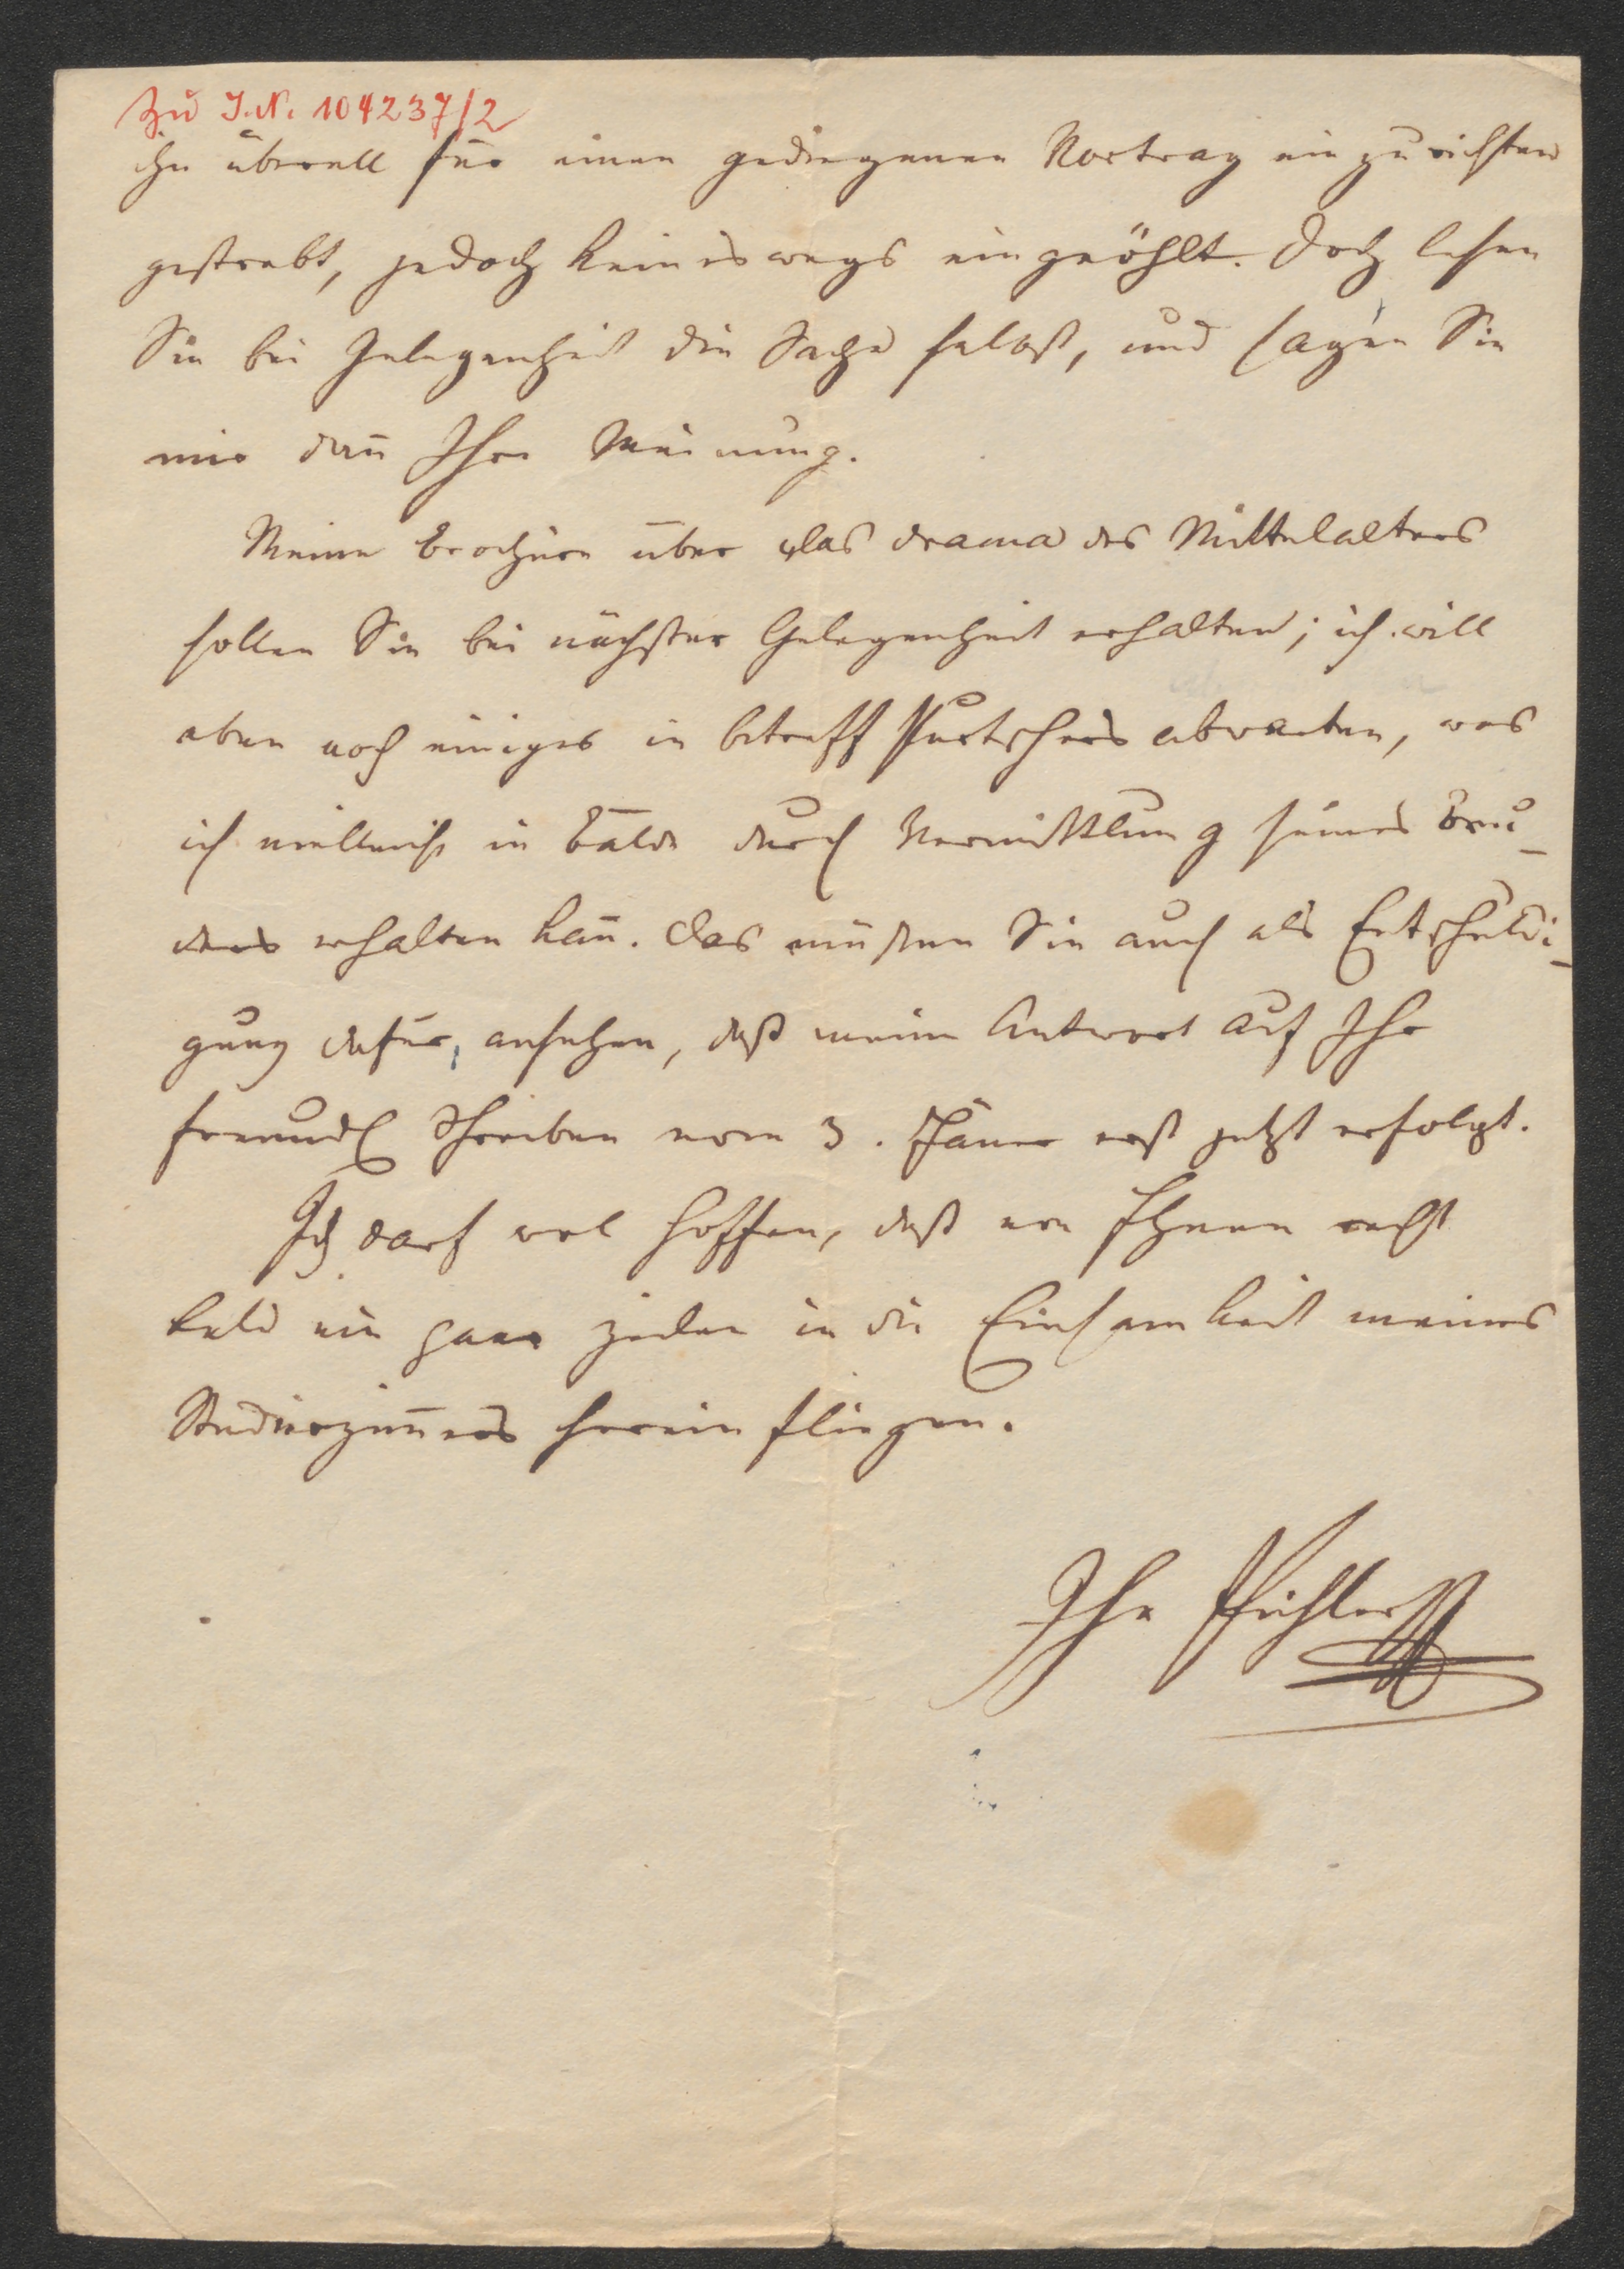 Zu I.N. 104237/2
ihn überall für einen gediegenen Vortrag einzurichten
gestrebt, jedoch keineswegs eingeöhlt. Doch lesen
Sie bei Gelegenheit die Sache selbst, und sagen Sie
mir dan̄ Ihre Meinung.
Meine Brochüre über das Drama des Mittelalters
sollen Sie bei nächster Gelegenheit erhalten; ich will
eben noch einiges in betreff Purtschers abwarten, was
ich vielleicht in Bälde durch Vermittlung seines Bru-
ders erhalten kan̄. Das müßen Sie auch als Entschuldi-
gung dafür, ansehen, daß meine Antwort auf Ihr
freundl Schreiben vom 3. Jäner erst jetzt erfolgt.
Ich darf wol hoffen, daß von Ihnen recht
bald ein paar Zeilen in die Einsamkeit meines
Studierzim̄ers hereinfliegen.
Ihr Pichler